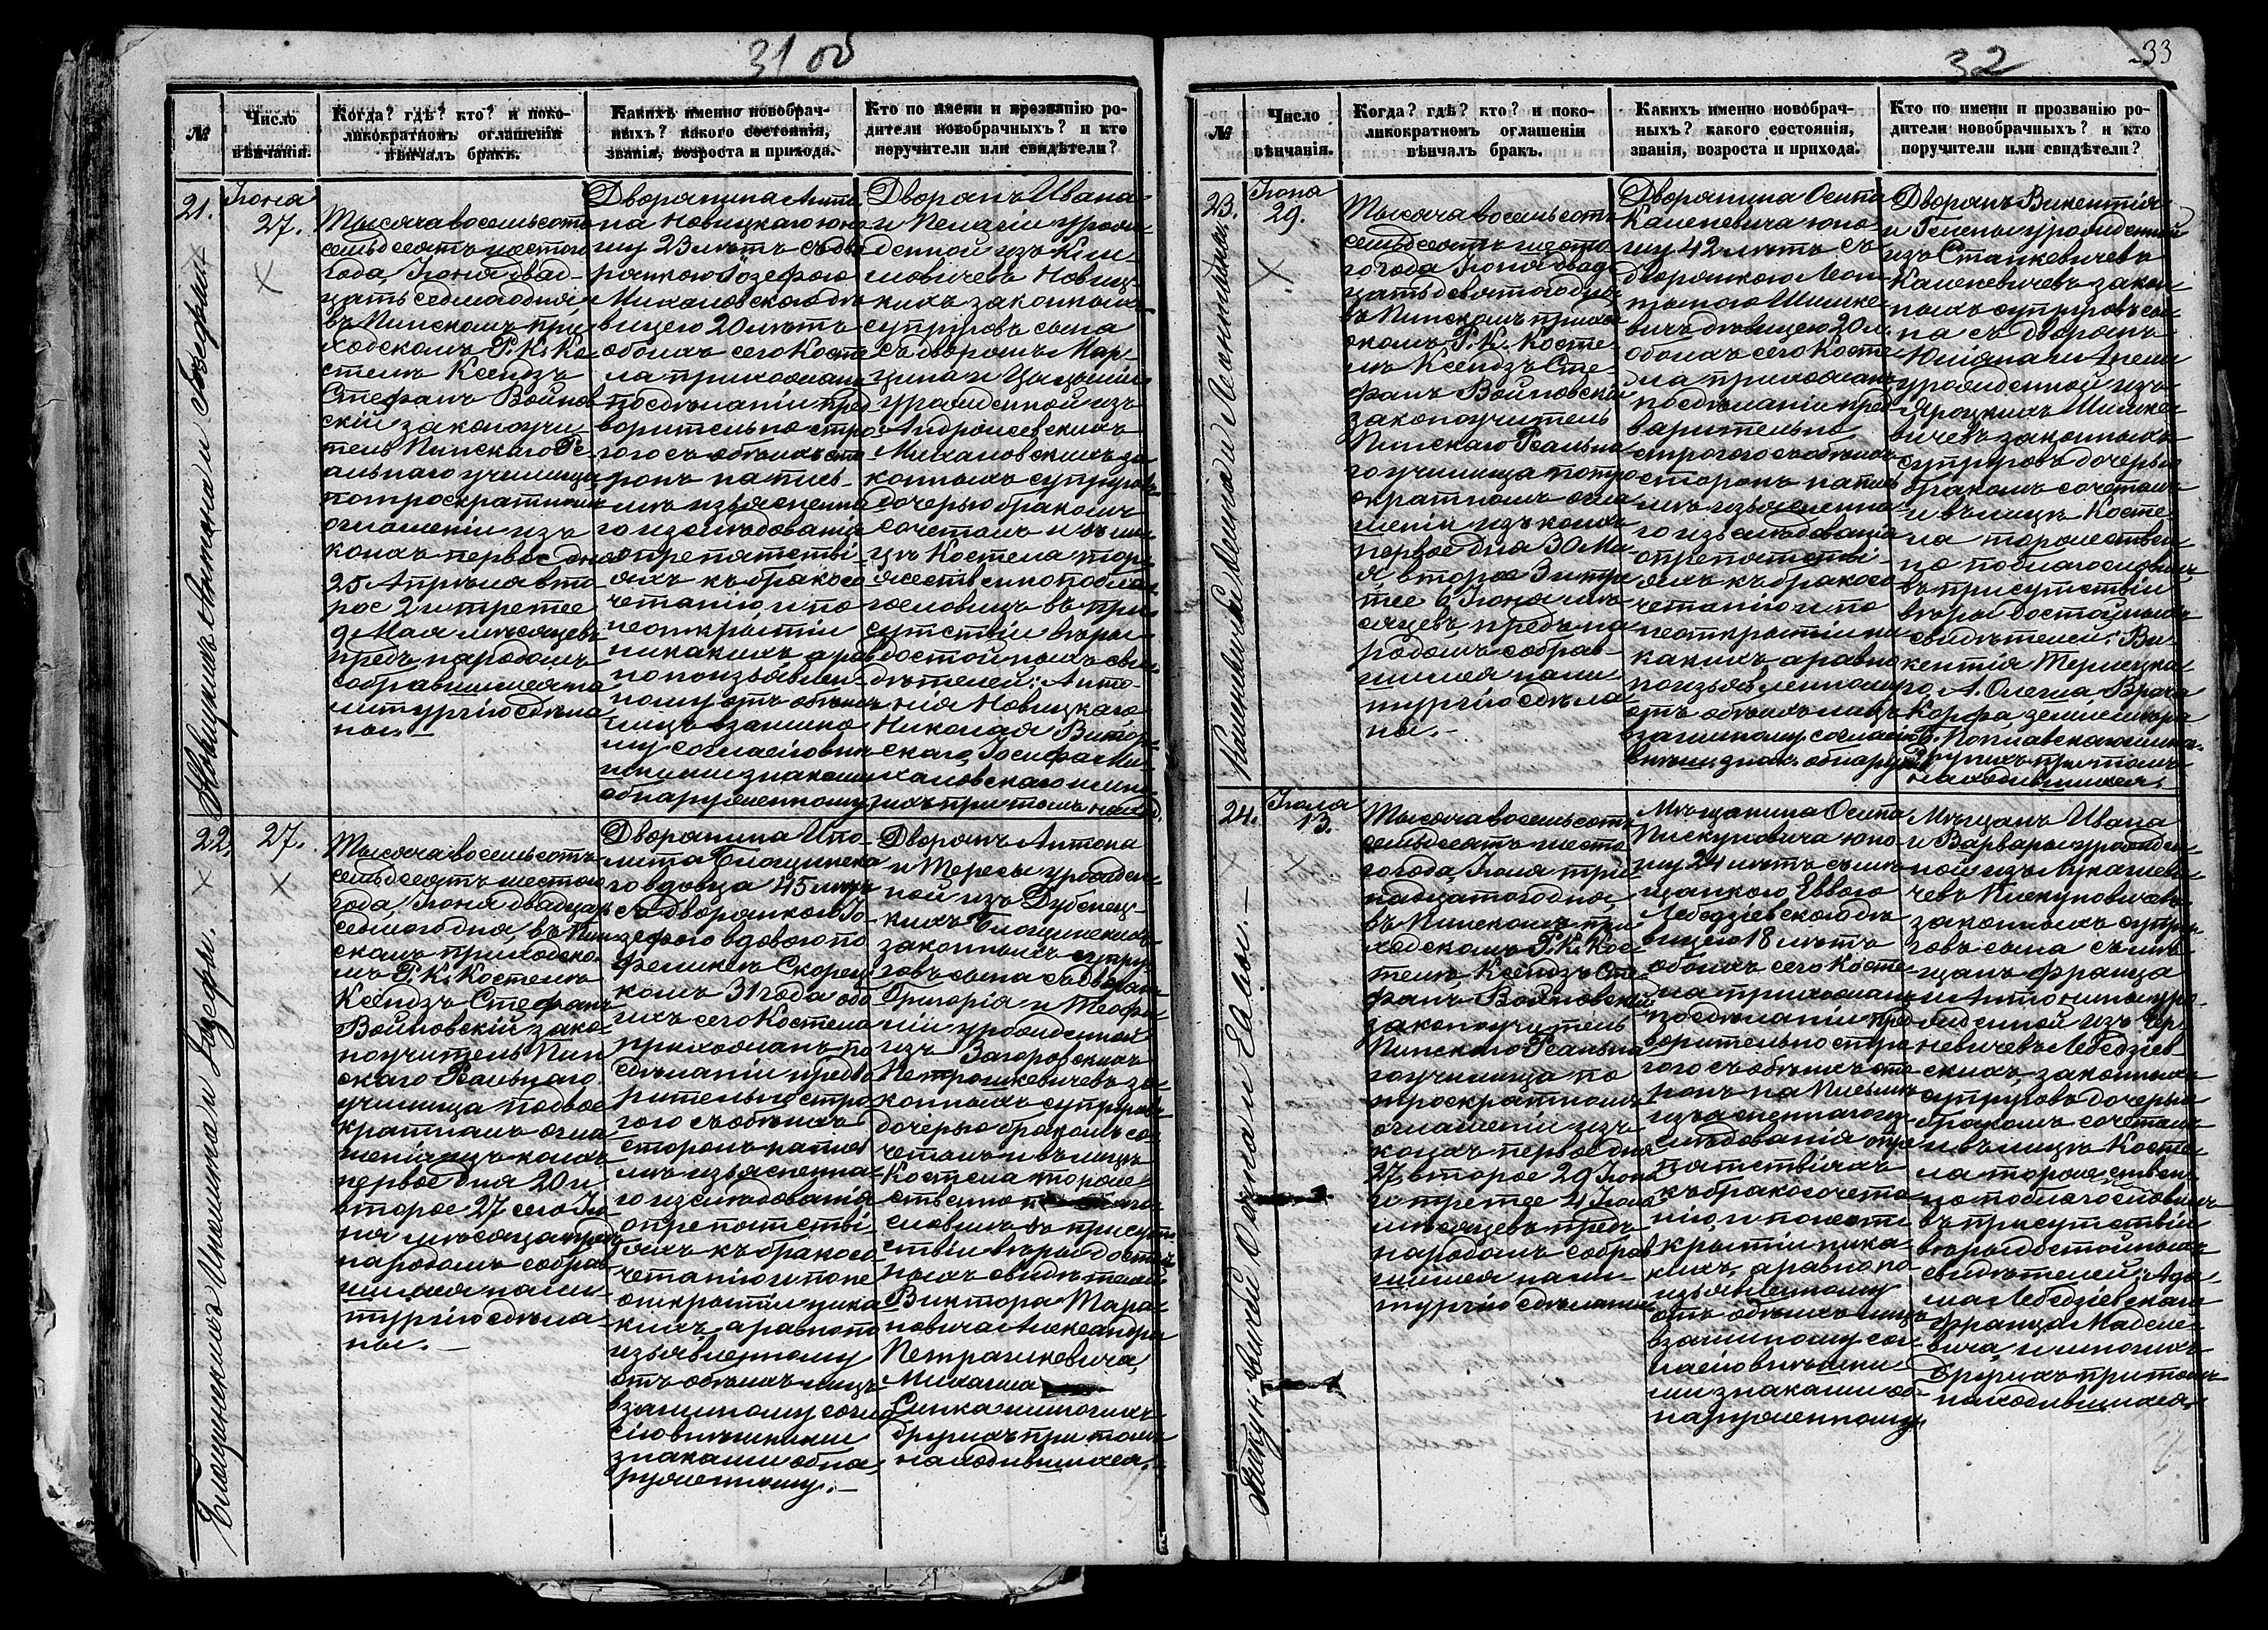 31 об
№
Число
вѣнчанія.
Когда? гдѣ? кто? и поко-
ликократномъ оглашеніи
вѣнчалъ бракъ.
Какихъ именно новобрач-
ныхъ? какого состоянія,
званія, возроста и прихода.
Кто по имени и прозванію ро-
дители новобрачныхъ? и кто
поручители или свидѣтели?
21.
Новицкихъ Антона и Іозефы
Іюня
27.
Тысяча восемьсотъ
семьдесятъ шестого
года, Іюня двад-
цать седьмаго дня,
въ Пинскомъ при-
ходскомъ Р. К. Ко-
стелѣ Ксендзъ
Стефанъ Войнов
скій законоучи-
тель Пинскаго Ре-
альнаго училища,
по троекратномъ
оглашеніи изъ
коихъ первое дня
25 Апрѣля вто
рое 2 и третее
9 Мая мѣсяцевъ
предъ народомъ
собравшимся на
литургію сдѣла
ны.—
Дворянина Анто
на Новицкаго юно
шу 23 лѣтъ съ дво
рянкою Іозефою
Михаловскою дѣ
вицею 20 лѣтъ
обоихъ сего Косте
ла прихожанъ
по сдѣланіи пред
ворительно стро
гого съ обѣихъ сто
ронъ на пись-
мѣ изъясненна
го изслѣдованія
о препятстві-
яхъ къ бракосо
четанію, и по
неоткрытіи
никакихъ а рав
но по изъявлен-
ному отъ обѣихъ
лицъ взаимно
му согласію внѣ
шними знаками
обнаруженному
Дворянъ Ивана
и Пелагіи урож-
денной изъ Кли-
мовичевъ Новиц-
кихъ законныхъ
супруговъ сына
съ дворянъ Мар-
цина и Цыцыліи
урожденной изъ
Андроисевскихъ
Михаловскихъ за
конныхъ супруговъ
дочерью бракомъ
сочеталъ и въ ли-
цѣ Костела тор-
жественно побла-
гословилъ въ при-
сутствіи вѣры
достойныхъ сви-
дѣтелей: Анто-
нія Новицкаго
Николая Витор-
скаго, Іосифа Ми-
халовскаго и мно-
гихъ при томъ наход.
22.
Блощинскихъ Ипполита и Іозефы.
27.
Тысяча восемьсотъ
семьдесятъ шестого
года, Іюня двадцать
седмого дня, въ Пин
скомъ приходско-
мъ Р. К. Костелѣ
Ксендзъ Стефанъ
Войновскій зако-
ноучитель Пин
скаго Реальнаго
училища по двое
кратномъ огла
шеніи изъ коихъ
первое дня 20 и
второе 27 сего Ію
ня мѣсяца предъ
народомъ собрав
шимся на ли-
тургію сдѣла-
ны.—
Дворянина Ипо-
лита Блощинска
го вдовца 45 лѣтъ
съ дворянкою Іо-
зефою вдовою по
Феликсѣ Скорец
комъ 31 года обо
ихъ сего Костела
прихожанъ по
сдѣланіи предво
рительно стро
гого съ обѣихъ
сторонъ на пись
мѣ изъясненна-
го изслѣдованія
о препятстві-
яхъ къ бракосо-
четанію и по не
открытіи ника
кихъ, а равно по
изъявленному
отъ обѣихъ лицъ
взаимному согла
сію внѣшними
знаками обна-
руженному.—
Дворянъ Антона
и Тересы урожден-
ной изъ Дубенец-
кихъ Блощинскихъ
законныхъ супру-
говъ сына съ дворянъ
Григорія и Теофи-
ліи урожденной
изъ Загоровскихъ
Петрашкевичевъ за-
конныхъ супруговъ
дочерью бракомъ со-
четалъ и въ лицѣ
Костела торже
ственно благо-
словилъ въ присут
ствіи вѣры достой-
ныхъ свидѣтелей
Виктора Тара-
новича Александра
Петрашкевича,
Михаила
Синка и многихъ
другихъ при томъ
находившихся.
32
33
№
Число
вѣнчанія.
Когда? гдѣ? кто? и поко-
ликократномъ оглашеніи
вѣнчалъ бракъ.
Какихъ именно новобрач-
ныхъ? какого состоянія,
званія, возроста и прихода.
Кто по имени и прозванію ро-
дители новобрачныхъ? и кто
поручители или свидѣтели?
23.
Каменевичей Осипа и Леонтины.
Іюня
29.
Тысяча восемьсотъ
семьдесятъ шесто
го года Іюня двад-
цать девятого дня
въ Пинскомъ прихо
дскомъ Р. К. Косте
лѣ Ксендзъ Сте-
фанъ Войновскій
законоучитель
Пинскаго Реальна
го училища по тро
екратномъ огла
шеніи изъ коихъ
первое дня 30 Ма-
я второе 3 и тре
тее 6 Іюня мѣ
сяцевъ, предъ на
родомъ собрав-
шимся на ли
тургію сдѣла
ны.—
Дворянина Осипа
Каменевича юно-
шу 42 лѣтъ съ
дворянкою Леон
тиною Шишке-
вичъ дѣвицею 20 л.
обоихъ сего Косте
ла прихожанъ
по сдѣланіи пред
варительно
строгого съ обѣихъ
сторонъ на пись
мѣ изъясненна
го изслѣдованія
о препятстві-
яхъ къ бракосо
четанію и по
неоткрытіи ни
какихъ а равно
по изъявленному
отъ обѣихъ лицъ
взаимному согласію
внѣшн. знак. обнаруж.
Дворянъ Викентія
и Гелены урожденной
изъ Станкевичевъ
Каменевичевъ закон
ныхъ супруговъ сы-
на съ дворянъ
Юліяна и Анели
урожденной изъ
Яроцкихъ Шишке
вичевъ законныхъ
супруговъ дочерью
бракомъ сочеталъ
и въ лицѣ Косте
ла торжествен
но поблагословилъ
въ присутствіи
вѣры достойныхъ
свидѣтелей: Ви-
кентія Терлецка-
го, А. Олеша Врача
Корфа, землемѣра
Поплавскаго и мн.
другихъ при томъ
находившихся.
24.
Пискуновичей Осипа и Евы.—
Іюля
13.
Тысяча восемьсотъ
семьдесятъ шесто
го года, Іюля три
надцатого дня,
въ Пинскомъ при
ходскомъ Р. К. Кос-
телѣ, Ксендзъ Сте
фанъ Войновскій
законоучитель
Пинскаго Реальна
го училища по
троекратномъ
оглашеніи изъ
коихъ первое дня
27, второе 29 Іюня
и третее 4 Іюля
мѣсяцевъ предъ
народомъ собрав
шимся на ли-
тургію сдѣланны
Мѣщанина Осипа
Пискуновича юно
шу 24 лѣтъ съ мѣ
щанкою Еввою
Лебедзіевскою дѣ
вицею 18 лѣтъ
обоихъ сего Косте-
ла прихожанъ
по сдѣланіи пред
ворительно стро
гого съ обѣихъ сто
ронъ на письмѣ
изъясненнаго из-
слѣдованія о пре
пятствіяхъ
къ бракосочета-
нію, и по неот
крытіи ника-
кихъ, а равно по
изъявленному
отъ обѣихъ лицъ
взаимному сог-
ласію внѣшни
ми знаками об-
наруженному
Мѣщанъ Ивана
и Варвары урожден-
ной изъ Лукашеви-
чевъ Пискуновичевъ
законныхъ супру-
говъ сына съ мѣ-
щанъ Франца
и Антонины уро-
жденной изъ Чер-
невичевъ Лебедзіев-
скихъ, законныхъ
супруговъ дочерью
бракомъ сочеталъ
и въ лицѣ Косте-
ла торжествен-
но поблагословилъ
въ присутствіи
вѣры достойныхъ
свидѣтелей: Ада-
ма Лебедзіевскаго
Франца Маселе-
вича, и многихъ
другихъ при томъ
находившихся.